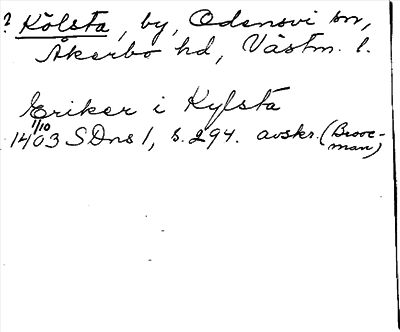 ? Kölsta, by, Odensvi sn,
Åkerbo hd, Västm. l.
Eriker i Kylsta
1403 1/10 SDns 1, s. 294. avskr. (Brooc-
man)